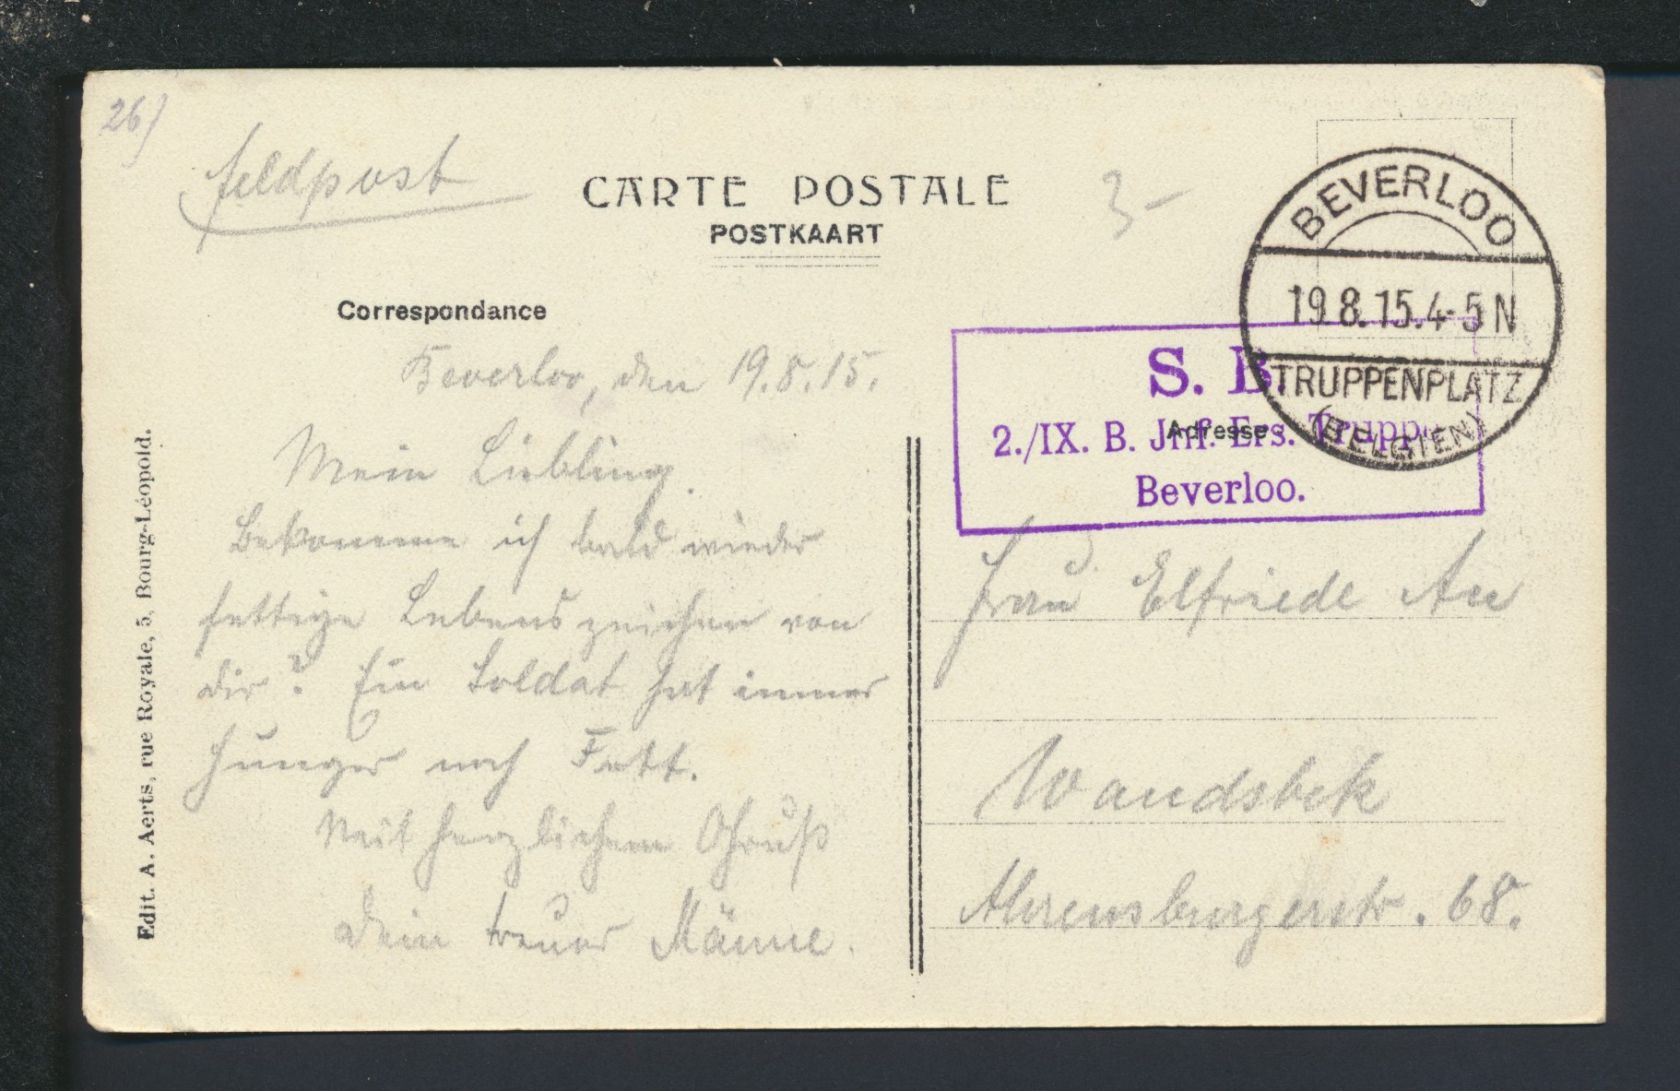 26)
Feldpost
CARTE POSTALE
POSTKAART
3-
BEVERLOO
19.8.15.4-5N
TRUPPENPLATZ
(BELGIEN)
S. B.
2./IX. B. Jnf. Ers. Truppe
Beverloo.
Correspondance
Adresse
Beverloo, den 19.8.15.
Mein Liebling.
Bekomme ich bald wieder
fettige Lebenszeichen von
dir? Ein Soldat hat immer
Hunger nach Fett.
Mit herzlichem Gruß
dein treuer Männe.
Frau Elfriede Au
Wandsbek
Ahrensburgerstr. 68.
Edit. A. Aerts, rue Royale, 5, Bourg-Léopold.